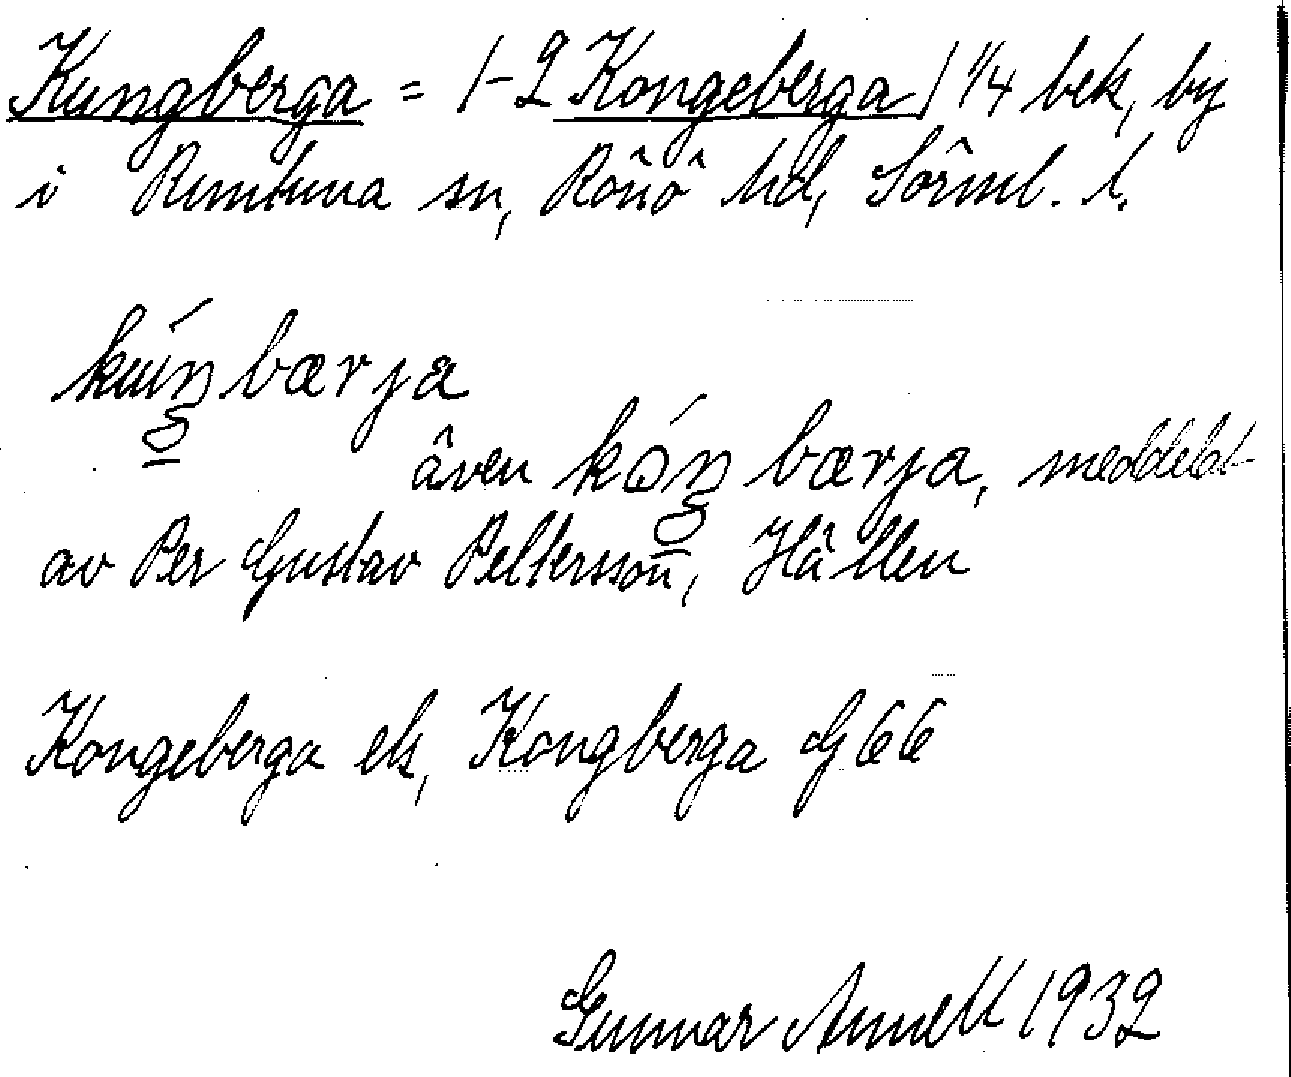 Kungberga = 1-2 Kongeberga 1 1/4 bek, by
i Runtuna sn, Rönö hd, Sörml. l.
kúŋbærja
även kɔ́ŋbærja, meddelat
av Per Gustav Pettersson, Hållen
Kongeberga ek, Kongberga G 66
Gunnar Annell 1932